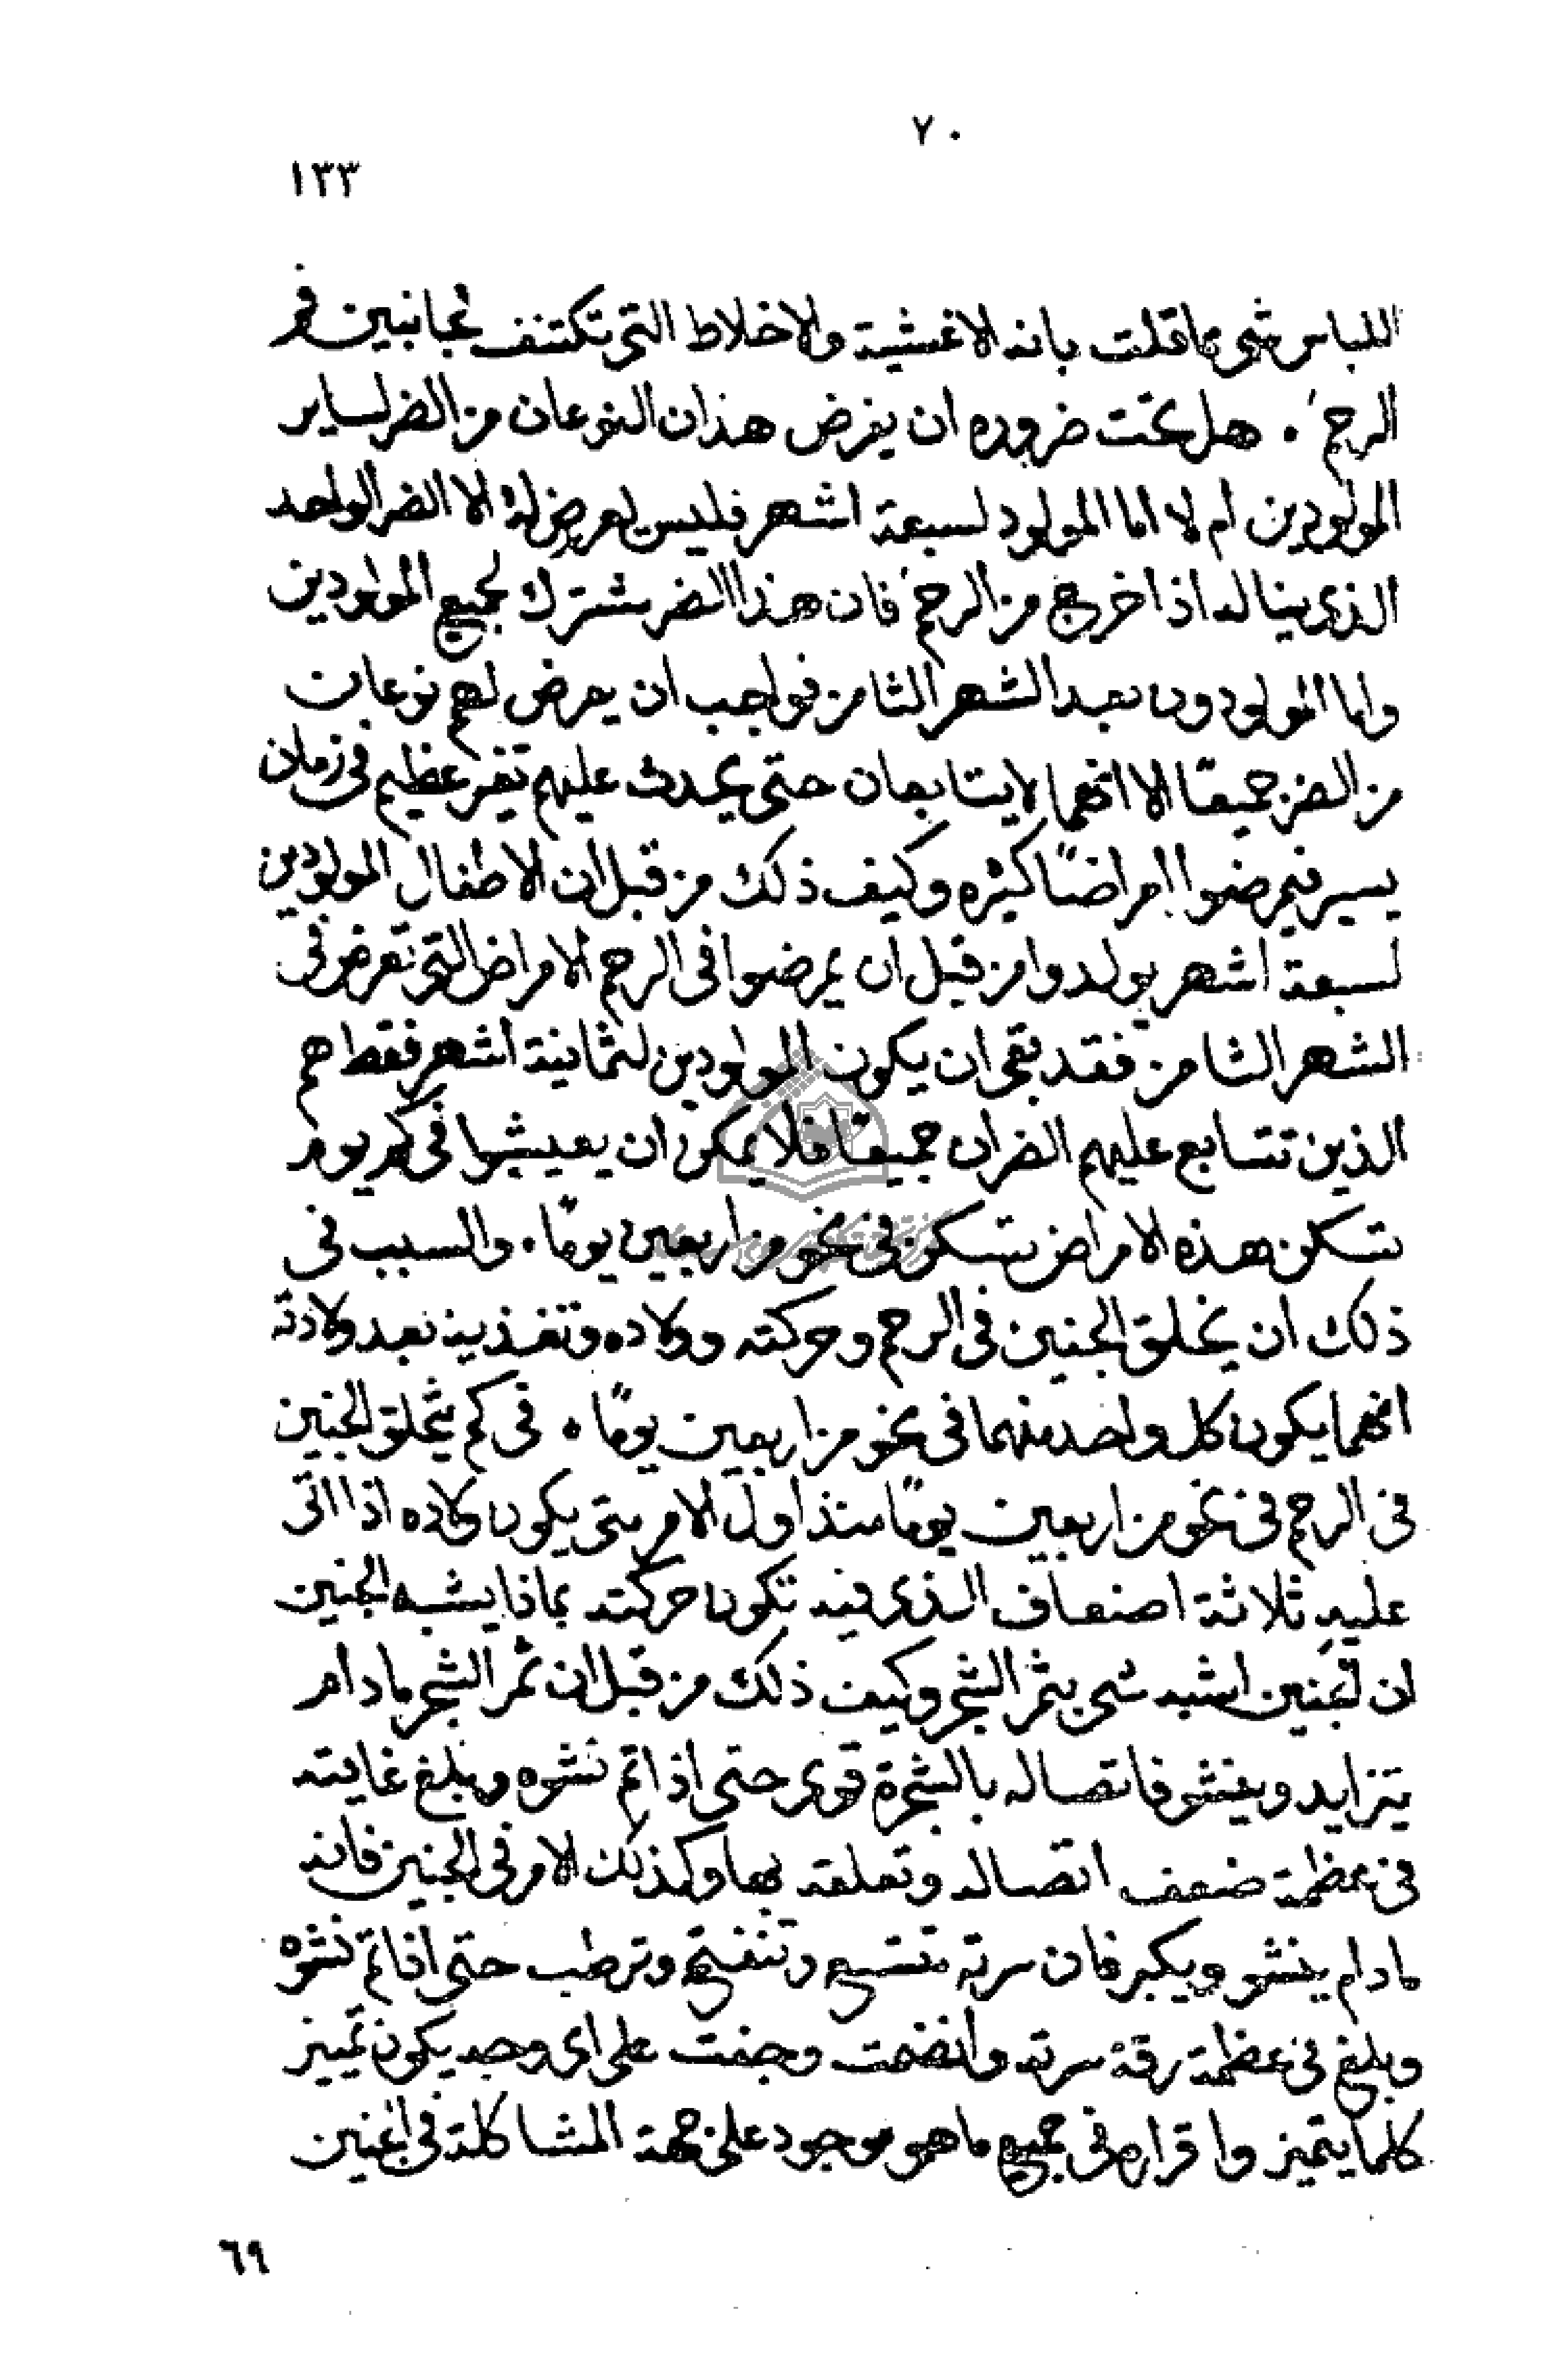 ٧٠
١٣٣
اللباس شي ما قلت بانه الاغشية والاخلاط التي تكتنف بجانبين فم
الرحم . هل تحت ضروره ان يعرض هذان النوعان من الضر لساير
المولودين ام لا اما المولود لسبعة اشهر فليس يعرض له الا الضر الواحد
الذي يناله اذا خرج من الرحم فان هذا الضر مشترك لجميع المولودين
واما المولودون بعد الشهر الثامن فواجب ان يعرض لهم نوعان
من الضر جميعًا الا انهما لا يتتابعان حتى يحدث عليهم تغير عظيم في زمان
يسير فيمرضوا امراضًا كثيره وكيف ذلك من قبل ان الاطفال المولودين
لسبعة اشهر يولدوا من قبل ان يمرضوا في الرحم الامراض التي تعرض في
الشهر الثامن فقد بقي ان يكون المولودين لثمانية اشهر فقط هم
الذين تتابع عليهم الضران جميعًا فلا يمكن ان يعيشوا في كم يوم
تسكن هذه الامراض تسكن في نحو من اربعين يومًا . والسبب في
ذلك ان يخلق الجنين في الرحم وحركته وولاده وتغذيه بعد ولادته
انهما يكون كل واحد منهما في نحو من اربعين يومًا . في كم يتخلق الجنين
في الرحم في نحو من اربعين يومًا منذ اول الامر متى يكون ولاده اذا اتى
عليه ثلاثة اضعاف الذي فيه تكون حركته بماذا يشبه الجنين
ان لجنين اشبه شي بثمر الشجر وكيف ذلك من قبل ان ثمر الشجر ما دام
يتزايد وينشو فاتصاله بالشجرة قوي حتى اذا تم نشوه وبلغ غايته
في عظمة ضعف اتصاله وتعلقه بها وكذلك الامر في الجنين فانه
ما دام ينشو ويكبر فان سرته تتسع وتنفتح وترطب حتى اذا تم نشوه
وبلغ في عظمة رقة سرته وانضمت وجفت على اي وجه يكون تمييز
كلما يتميز واقراره في جميع ما هو موجود على جهة المشاكلة في الجنين
٦٩